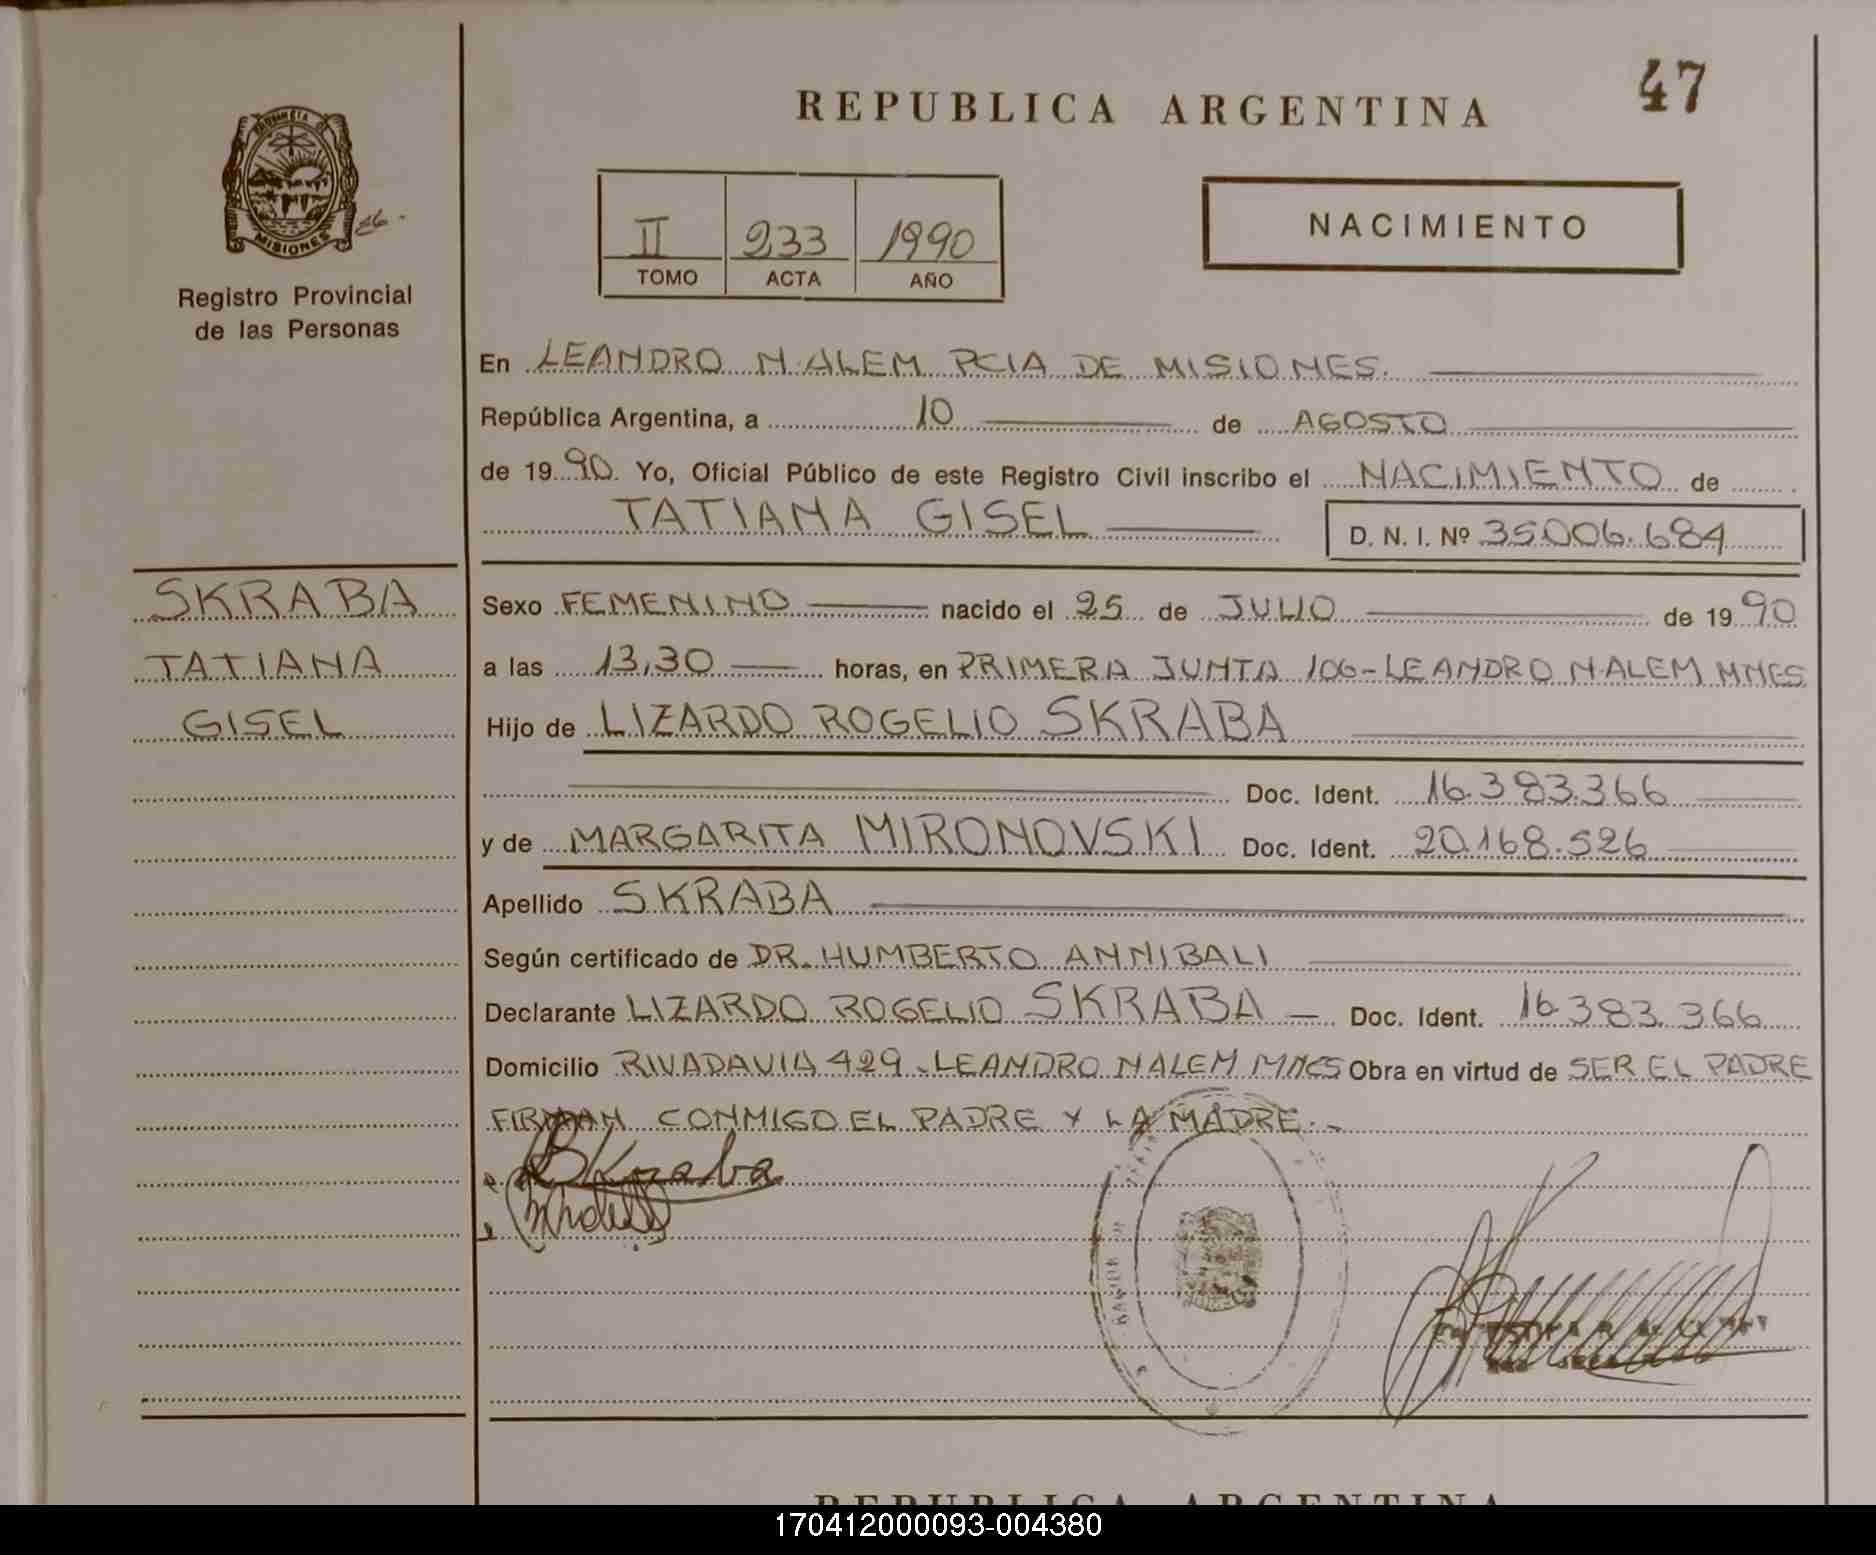 REPUBLICA ARGENTINA
47
PROVINCIA D
MISIONES
Registro Provincial
de las Personas
II 233 1990
TOMO ACTA AÑO
NACIMIENTO
En LEANDRO N. ALEM PCIA DE MISIONES.
República Argentina, a 10 de AGOSTO
de 1990. Yo, Oficial Público de este Registro Civil inscribo el NACIMIENTO de
TATIANA GISEL D. N. I. Nº 35.006.684
SKRABA
TATIANA
GISEL
Sexo FEMENINO nacido el 25 de JULIO de 1990
a las 13,30 horas, en PRIMERA JUNTA 106-LEANDRO N.ALEM MNES
Hijo de LIZARDO ROGELIO SKRABA
Doc. Ident. 16.383.366
y de MARGARITA MIRONOVSKI Doc. Ident. 20.168.526
Apellido SKRABA
Según certificado de DR. HUMBERTO ANNIBALI
Declarante LIZARDO ROGELIO SKRABA — Doc. Ident. 16.383.366
Domicilio RIVADAVIA 429-LEANDRO N ALEM MNES Obra en virtud de SER EL PADRE
FIRMAN CONMIGO EL PADRE Y LA MADRE.-
Skraba
REPUBLICA ARGENTINA
170412000093-004380